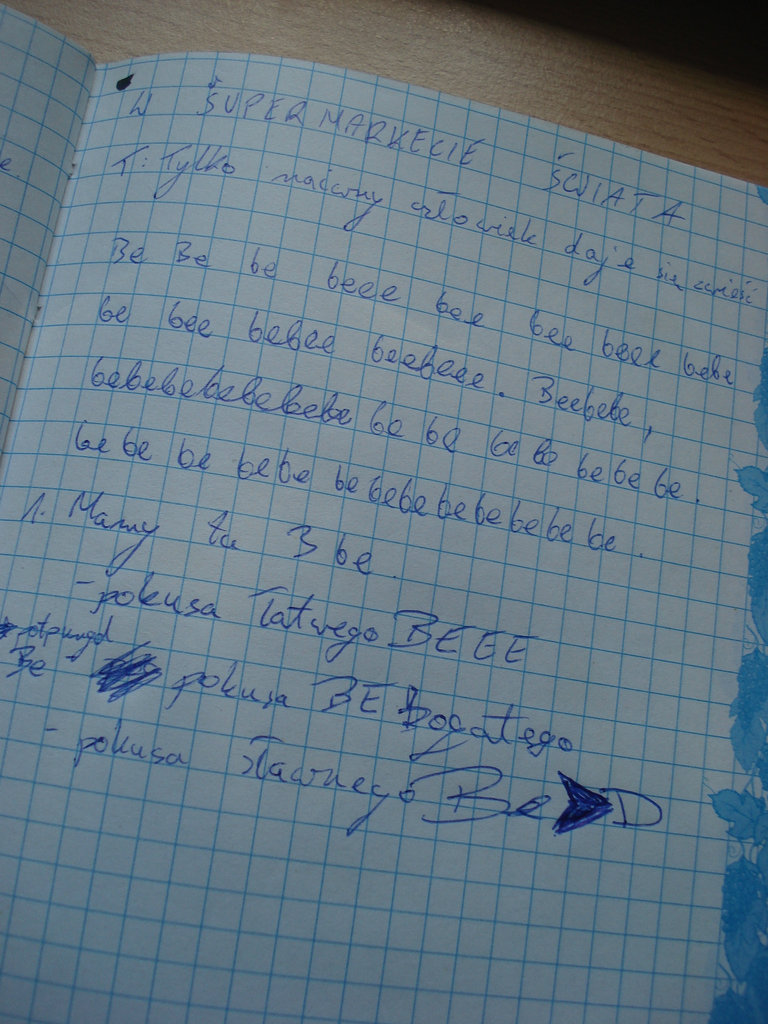 W SUPERMARKECIE ŚWIATA
T: Tylko naiwny człowiek daje się zwieść
Be Be be beee bee bee beee bebe
be bee bebee beebeee. Beebebe,
bebebebebebebebe be be be be be be be.
be be be be be be bebebe be bebe be be be.
1. Mamy tu 3 be.
- pokusa łatwego BEEE
otpurgd
Be - pokusa BE bogatego
- pokusa sławnego Be D